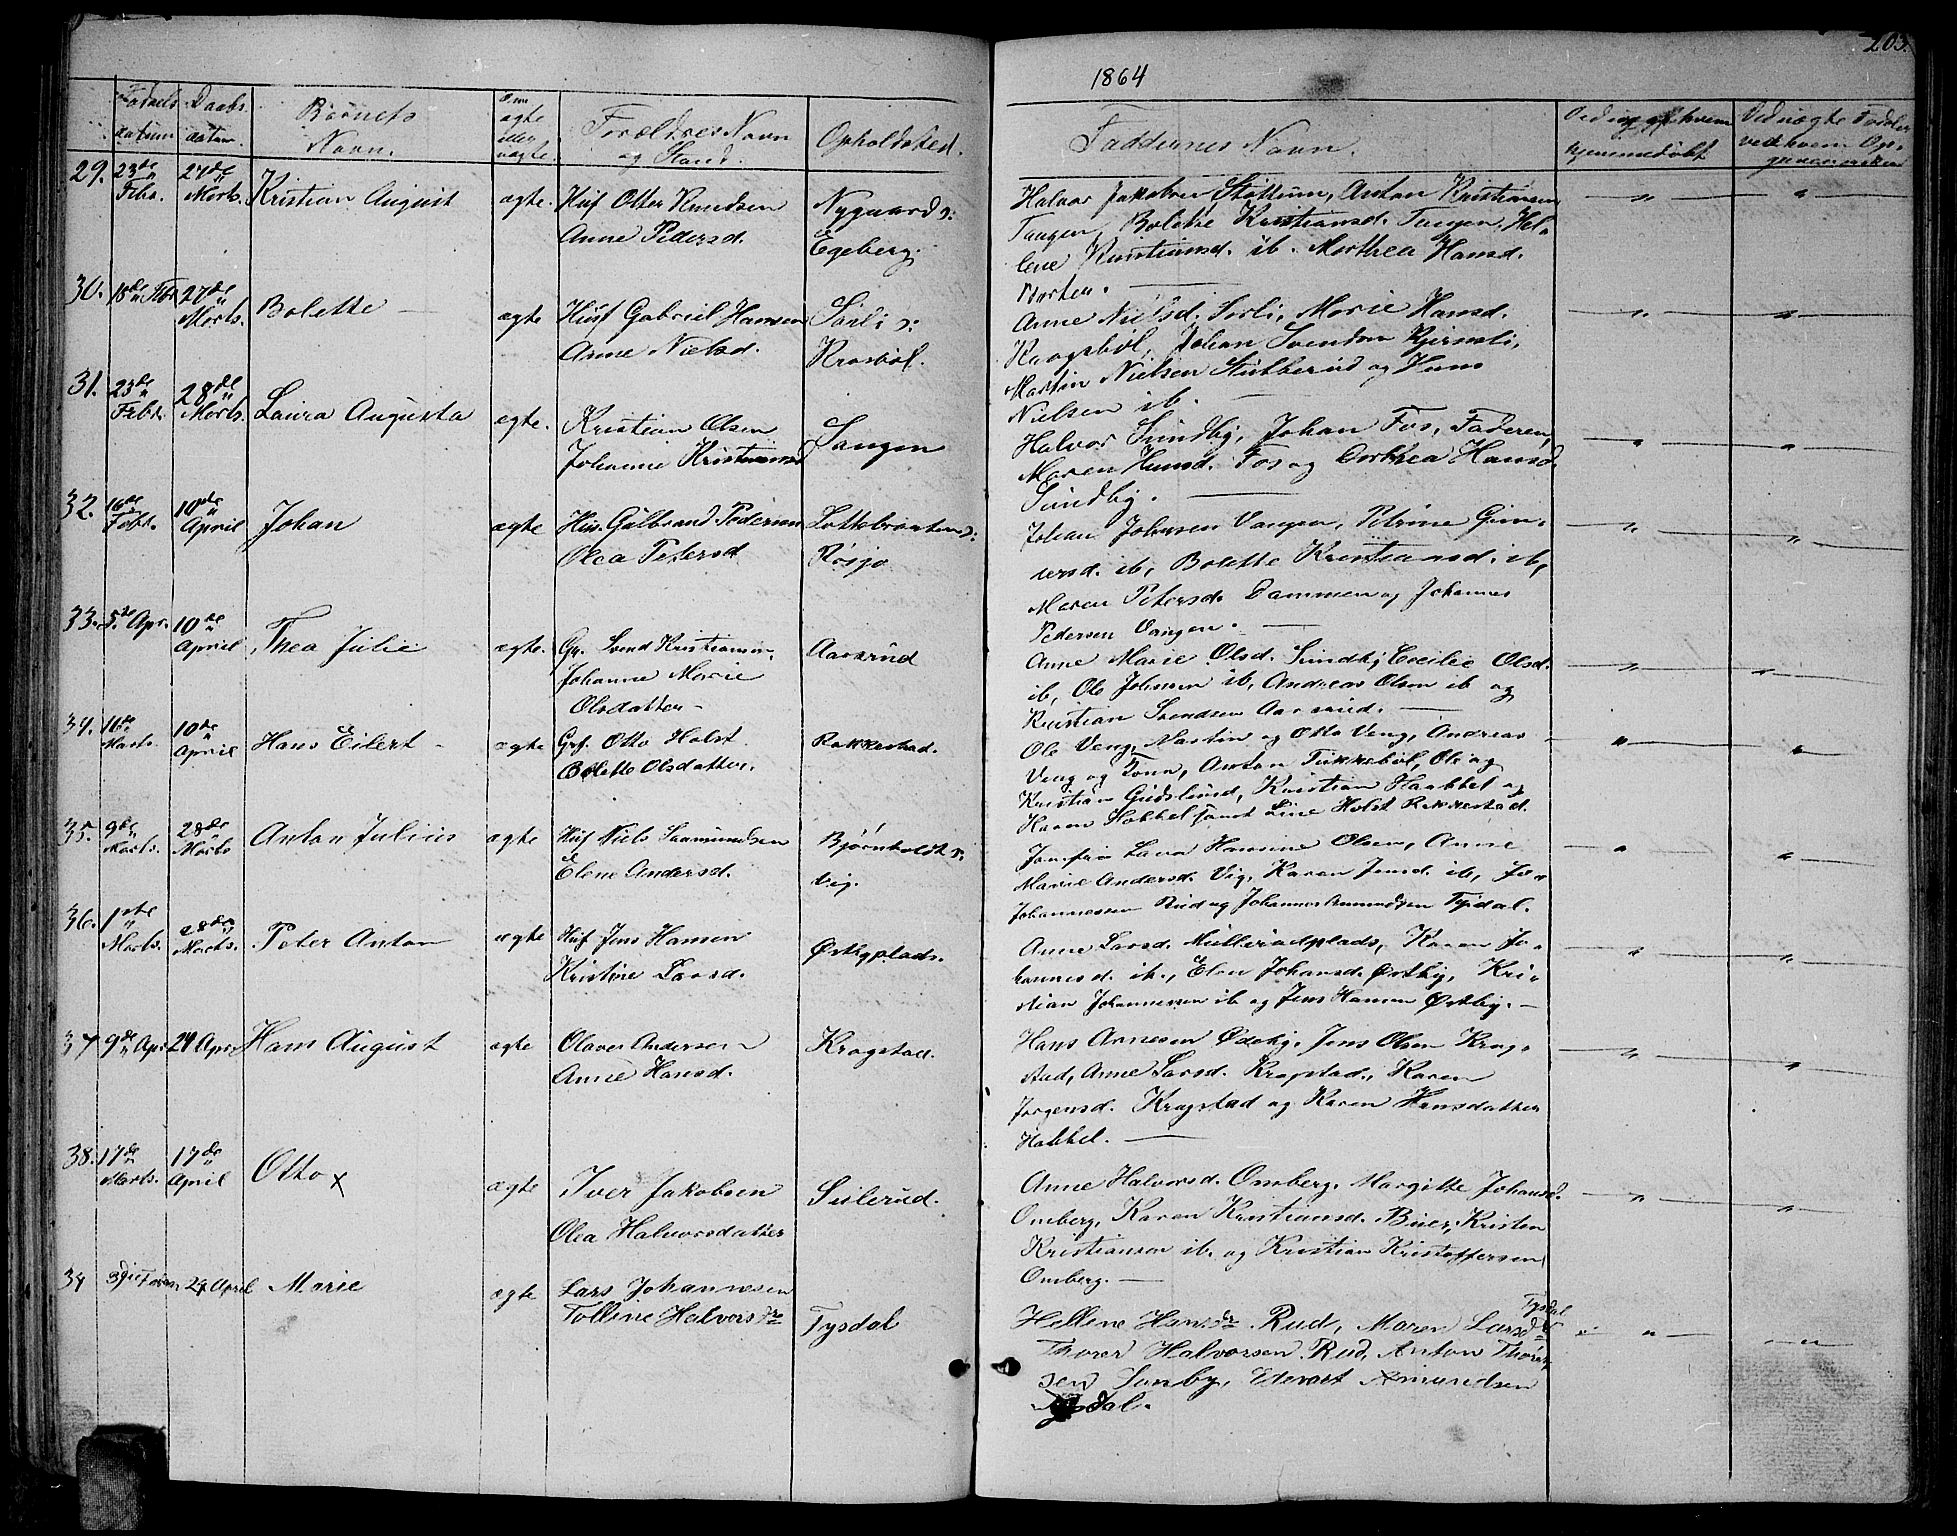 203.
1864
Fødsels datum
Daabs datum
Barnets Navn.
Om ægte eller uægte.
Forældres Navn og Stand.
Opholdssted.
Faddernes Navn.
29. 23de Febr. 27de Marts. Kristian August ægte. Husf Otter Knudsen Nygaard s:
Anne Pedersd. Egeberg.
Halvor Jakobsen Støttum, Anton Kristiansen
Tangen, Bolette Kristiansd. Tangen, Hel-
lene Kristiansd. ib. Marthea Hansd.
30. 18de Febr 27de Marts. Bolette — ægte Husf Gabriel Hansen Sørli s:
Anne Nielsd. Krosbøl.
Anne Nielsd. Sørli, Marie Hansd.
Krogsbøl, Johan Svendsen
Martin Nielsen og Hans
Nielsen ib. —
31. 23de Febr. 28de Marts. Laura Augusta ægte. Kristian Olsen Sangen
Johanne Kristiansd
Halvor Sundby, Johan Fos, Faderen,
Maren Hansd. Fos og Dorthea Hansd.
Sundby. —
32. 16de Febr. 10de April Johan ægte Hus. Gulbrand Pedersen s:
Olea Petersd Røsjø
Johan Johnsen Vangen, Petrine Gun-
dersd. ib, Bolette Kristiansd. ib,
Maren Petersd. Dammen og Johannes
Pedersen Vangen. —
33. 5te Apr. 10de April Thea Julie ægte. Gr. Svend Kristiansen Aasrud
Johanne Marie
Olsdatter –
Anne Marie Olsd. Sundby Cecilie Olsd.
ib, Ole Johnsen ib, Andreas Olsen ib og
Kristian Svendsen Aasrud. —
34. 16de Marts. 10de April Hans Eilert – ægte Grf. Otto Holst Rakkestad.
Bolette Olsdatter.
Ole Veng, Martin og Otto Veng, Andreas
Veng og Kone, Anton Ole og
Kristian Kristian Haabbel og
Karen Stine Holst Rakkestad.
35. 9de Marts. 28de Marts Anton Julius ægte Husf Niels Saamundsen Bjørnholdt s:
Elene Andersd. Vig.
Jomfru Hansine Olsen, Anne
Marie Andersd. Vig, Karen Jensd. ib, Jo-
Johannessen Rud og Johannes Tysdal.
36. 1ste Marts. 28de Marts. Peter Anton ægte Husf Jens Hansen Østbyplads.
Kristine Larsd.
Anne Larsd. Karen Jo-
hannesd. ib., Elen Johansd. Østby, Kri-
stian Johannessen ib og Jens Hansen Østby. —
37 9de Apr 24 Apr. Hans August ægte Olaves Andersen Kragstad.
Anne Hansd.
Hans Arnesen Ødeby, Jens Olsen Krag-
stad, Anne Larsd. Kragstad, Karen
Jørgensd. Kragstad og Karen Hansdatter
Habbel. —
38. 17de Marts. 17de April Otto x ægte Iver Jakobsen Siilerud.
Olea Halvorsdatter
Anne Halvorsd. Omberg, Margitte Johansd.
Omberg, Karen Kristiansd. Buer, Kristen
Kristiansen ib. og Kristian Kristoffersen
Omberg. —
39 24 April Marie ægte Lars Johannesen Tysdal
Tolline Halvorsdr
Hellene Hansdr Rud, Maren Larsdr Tysdal
Thorer Halvorsen Rud, Anton Thorer
sen Sunby, Edevart Amundsen
Tysdal.